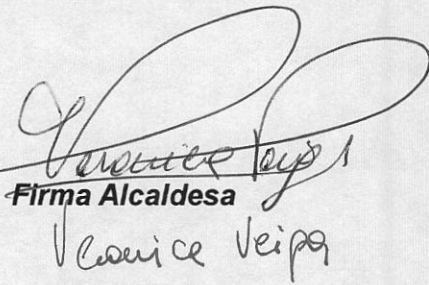 Veronica Veiga
Firma Alcaldesa
Veronica Veiga